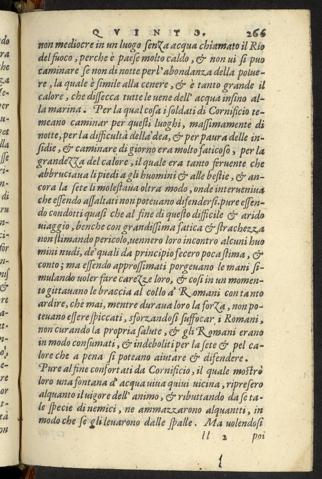 QVINTO. 266
non mediocre in un luogo senza acqua chiamato il Rio
del fuoco, perche è paese molto caldo, & non ui si puo
caminare se non di notte per l'abondanza della polue-
re, la quale è simile alla cenere, & è tanto grande il
calore, che dissecca tutte le uene dell'acqua insino al-
la marina. Per la qual cosa i soldati di Cornificio te-
meano caminar per questi luoghi, massimamente di
notte, per la difficultà della uia, & per paura delle in-
sidie, & caminare di giorno era molto faticoso, per la
grandezza del calore, il quale era tanto feruente che
abbruciaua li piedi a gli huomini & alle bestie, & an-
cora la sete li molestaua oltra modo, onde interueniua
che essendo assaltati non poteuano difendersi. pure essen-
do condotti quasi che al fine di questo difficile & arido
uiaggio, benche con grandissima fatica & strachezza
non stimando pericolo, uennero loro incontro alcuni huo
mini nudi, de' quali da principio fecero poca stima, &
conto; ma essendo approssimati porgeuano le mani si-
mulando uoler fare carezze loro, & cosi in un momen-
to gittauano le braccia al collo a' Romani con tanto
ardire, che mai, mentre duraua loro la forza, non po-
teuano essere spiccati, sforzandosi suffocar i Romani,
non curando la propria salute, & gli Romani erano
in modo consumati, & indeboliti per la sete & pel ca-
lore che a pena si poteano aiutare & difendere.
Pure al fine confortati da Cornificio, il quale mostrò
loro una fontana d'acqua uiua quiui uicina, ripresero
alquanto il uigore dell'animo, & ributtando da se ta-
le specie di nemici, ne ammazzarono alquanti, in
modo che se gli leuarono dalle spalle. Ma uolendosi
ll 2 poi